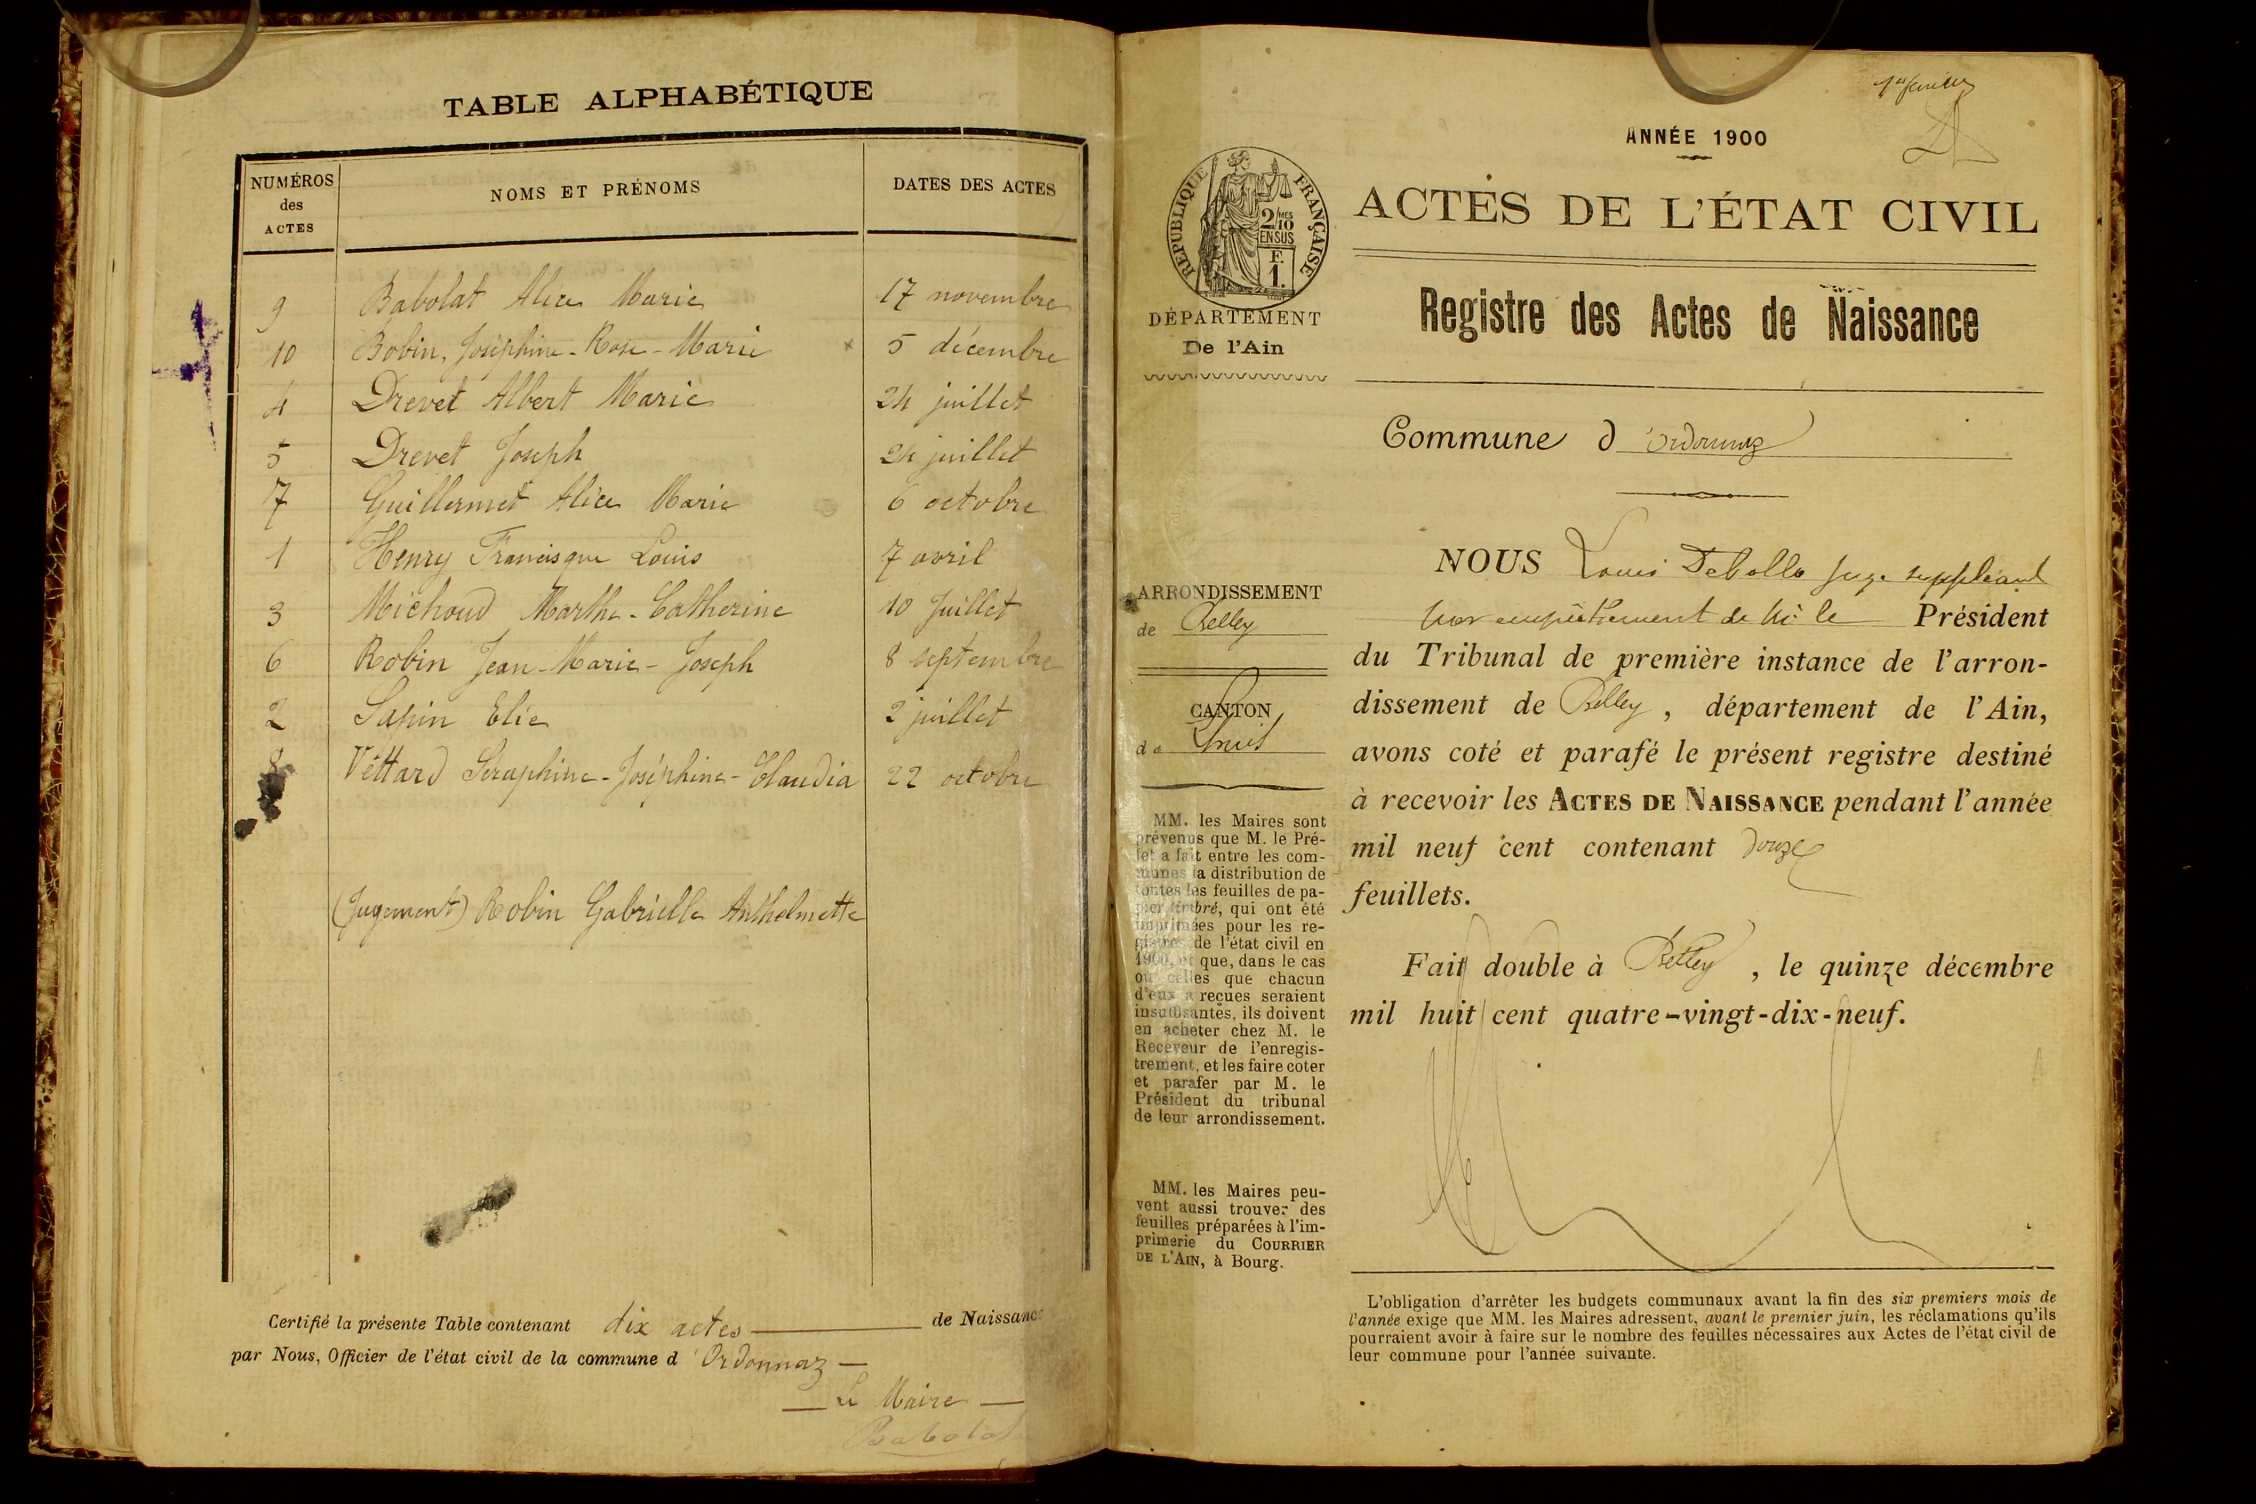 TABLE ALPHABÉTIQUE
NUMÉROS des ACTES
NOMS ET PRÉNOMS
DATES DES ACTES
9 Babolat Alice Marie 17 novembre
10 Bobin, Joséphine-Rose-Marie x 5 décembre
4 Drevet Albert Marie 24 juillet
5 Drevet Joseph 24 juillet
7 Guillermet Alice Marie 6 octobre
1 Henry Francisque Louis 7 avril
3 Michoud Marthe-Catherine 10 Juillet
6 Robin Jean-Marie-Joseph 8 septembre
2 Sapin Elie 2 juillet
8 Vettard Séraphine-Joséphine-Claudia 22 octobre
(Jugement) Robin Gabrielle Anthelmette
Certifié la présente Table contenant dix actes de Naissance
par Nous, Officier de l'état civil de la commune d'Ordonnaz
Le Maire
Babolat
1er feuillet
ANNÉE 1900
RÉPUBLIQUE FRANÇAISE
2/10 MES
EN SUS
F.
1.
ACTES DE L'ÉTAT CIVIL
Registre des Actes de Naissance
DÉPARTEMENT
De l'Ain
Commune d'Ordonnaz
ARRONDISSEMENT
de Belley
CANTON
de
MM. les Maires sont
prévenus que M. le Pré-
fet a fait entre les com-
munes la distribution de
toutes les feuilles de pa-
pier timbré, qui ont été
imprimées pour les re-
gistres de l'état civil en
1900, et que, dans le cas
où celles que chacun
d'eux a reçues seraient
insuffisantes, ils doivent
en acheter chez M. le
Receveur de l'enregis-
trement, et les faire coter
et parafer par M. le
Président du tribunal
de leur arrondissement.
MM. les Maires peu-
vent aussi trouver des
feuilles préparées à l'im-
primerie du COURRIER
DE L'AIN, à Bourg.
NOUS Louis juge suppléant
par empêchement de Mr le Président
du Tribunal de première instance de l'arron-
dissement de Belley, département de l'Ain,
avons coté et parafé le présent registre destiné
à recevoir les ACTES DE NAISSANCE pendant l'année
mil neuf cent contenant douze
feuillets.
Fait double à Belley, le quinze décembre
mil huit cent quatre-vingt-dix-neuf.
L'obligation d'arrêter les budgets communaux avant la fin des six premiers mois de
l'année exige que MM. les Maires adressent, avant le premier juin, les réclamations qu'ils
pourraient avoir à faire sur le nombre des feuilles nécessaires aux Actes de l'état civil de
leur commune pour l'année suivante.